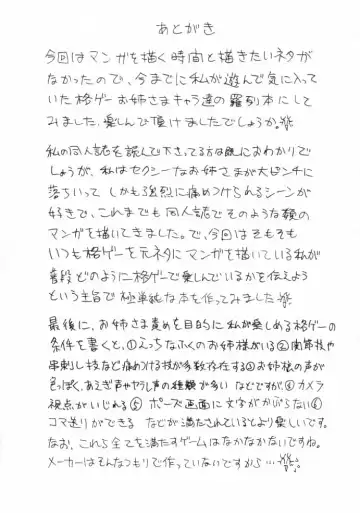 あとがき
今回はマンガを描く時間と描きたいネタが
なかったので、今までに私が遊んで気に入って
いた格ゲーお姉さまキャラ達の羅列本にして
みました。楽しんで頂けましたでしょうか。
私の同人誌を読んで下さってる方は既におわかりで
しょうが、私はセクシーなお姉さまが大ピンチに
落ちいって しかも強烈に痛めつけられるシーンが
好きで、これまでも同人誌でそのような類の
マンガを描いてきました。で、今回はそもそも
いつも格ゲーを元ネタにマンガを描いている私が
普段どのように格ゲーで楽しんでいるかを伝えよう
という主旨で極単純な本を作ってみました。
最後に、お姉さま責めを目的に私が楽しめる格ゲーの
条件を書くと、①えっちなふくのお姉様がいる②関節技や
串刺し技など痛めつける技が多数存在する③お姉様の声が
色っぽく、あえぎ声ややられ声の種類が多い などですが、④カメラ
視点がいじれる⑤ ポーズ画面に文字がかぶらない⑥
コマ送りができる などが満たされているとより楽しいです。
なお、これら全てを満たすゲームはなかなかないですね。
メーカーはそんなつもりで作っていないですから…